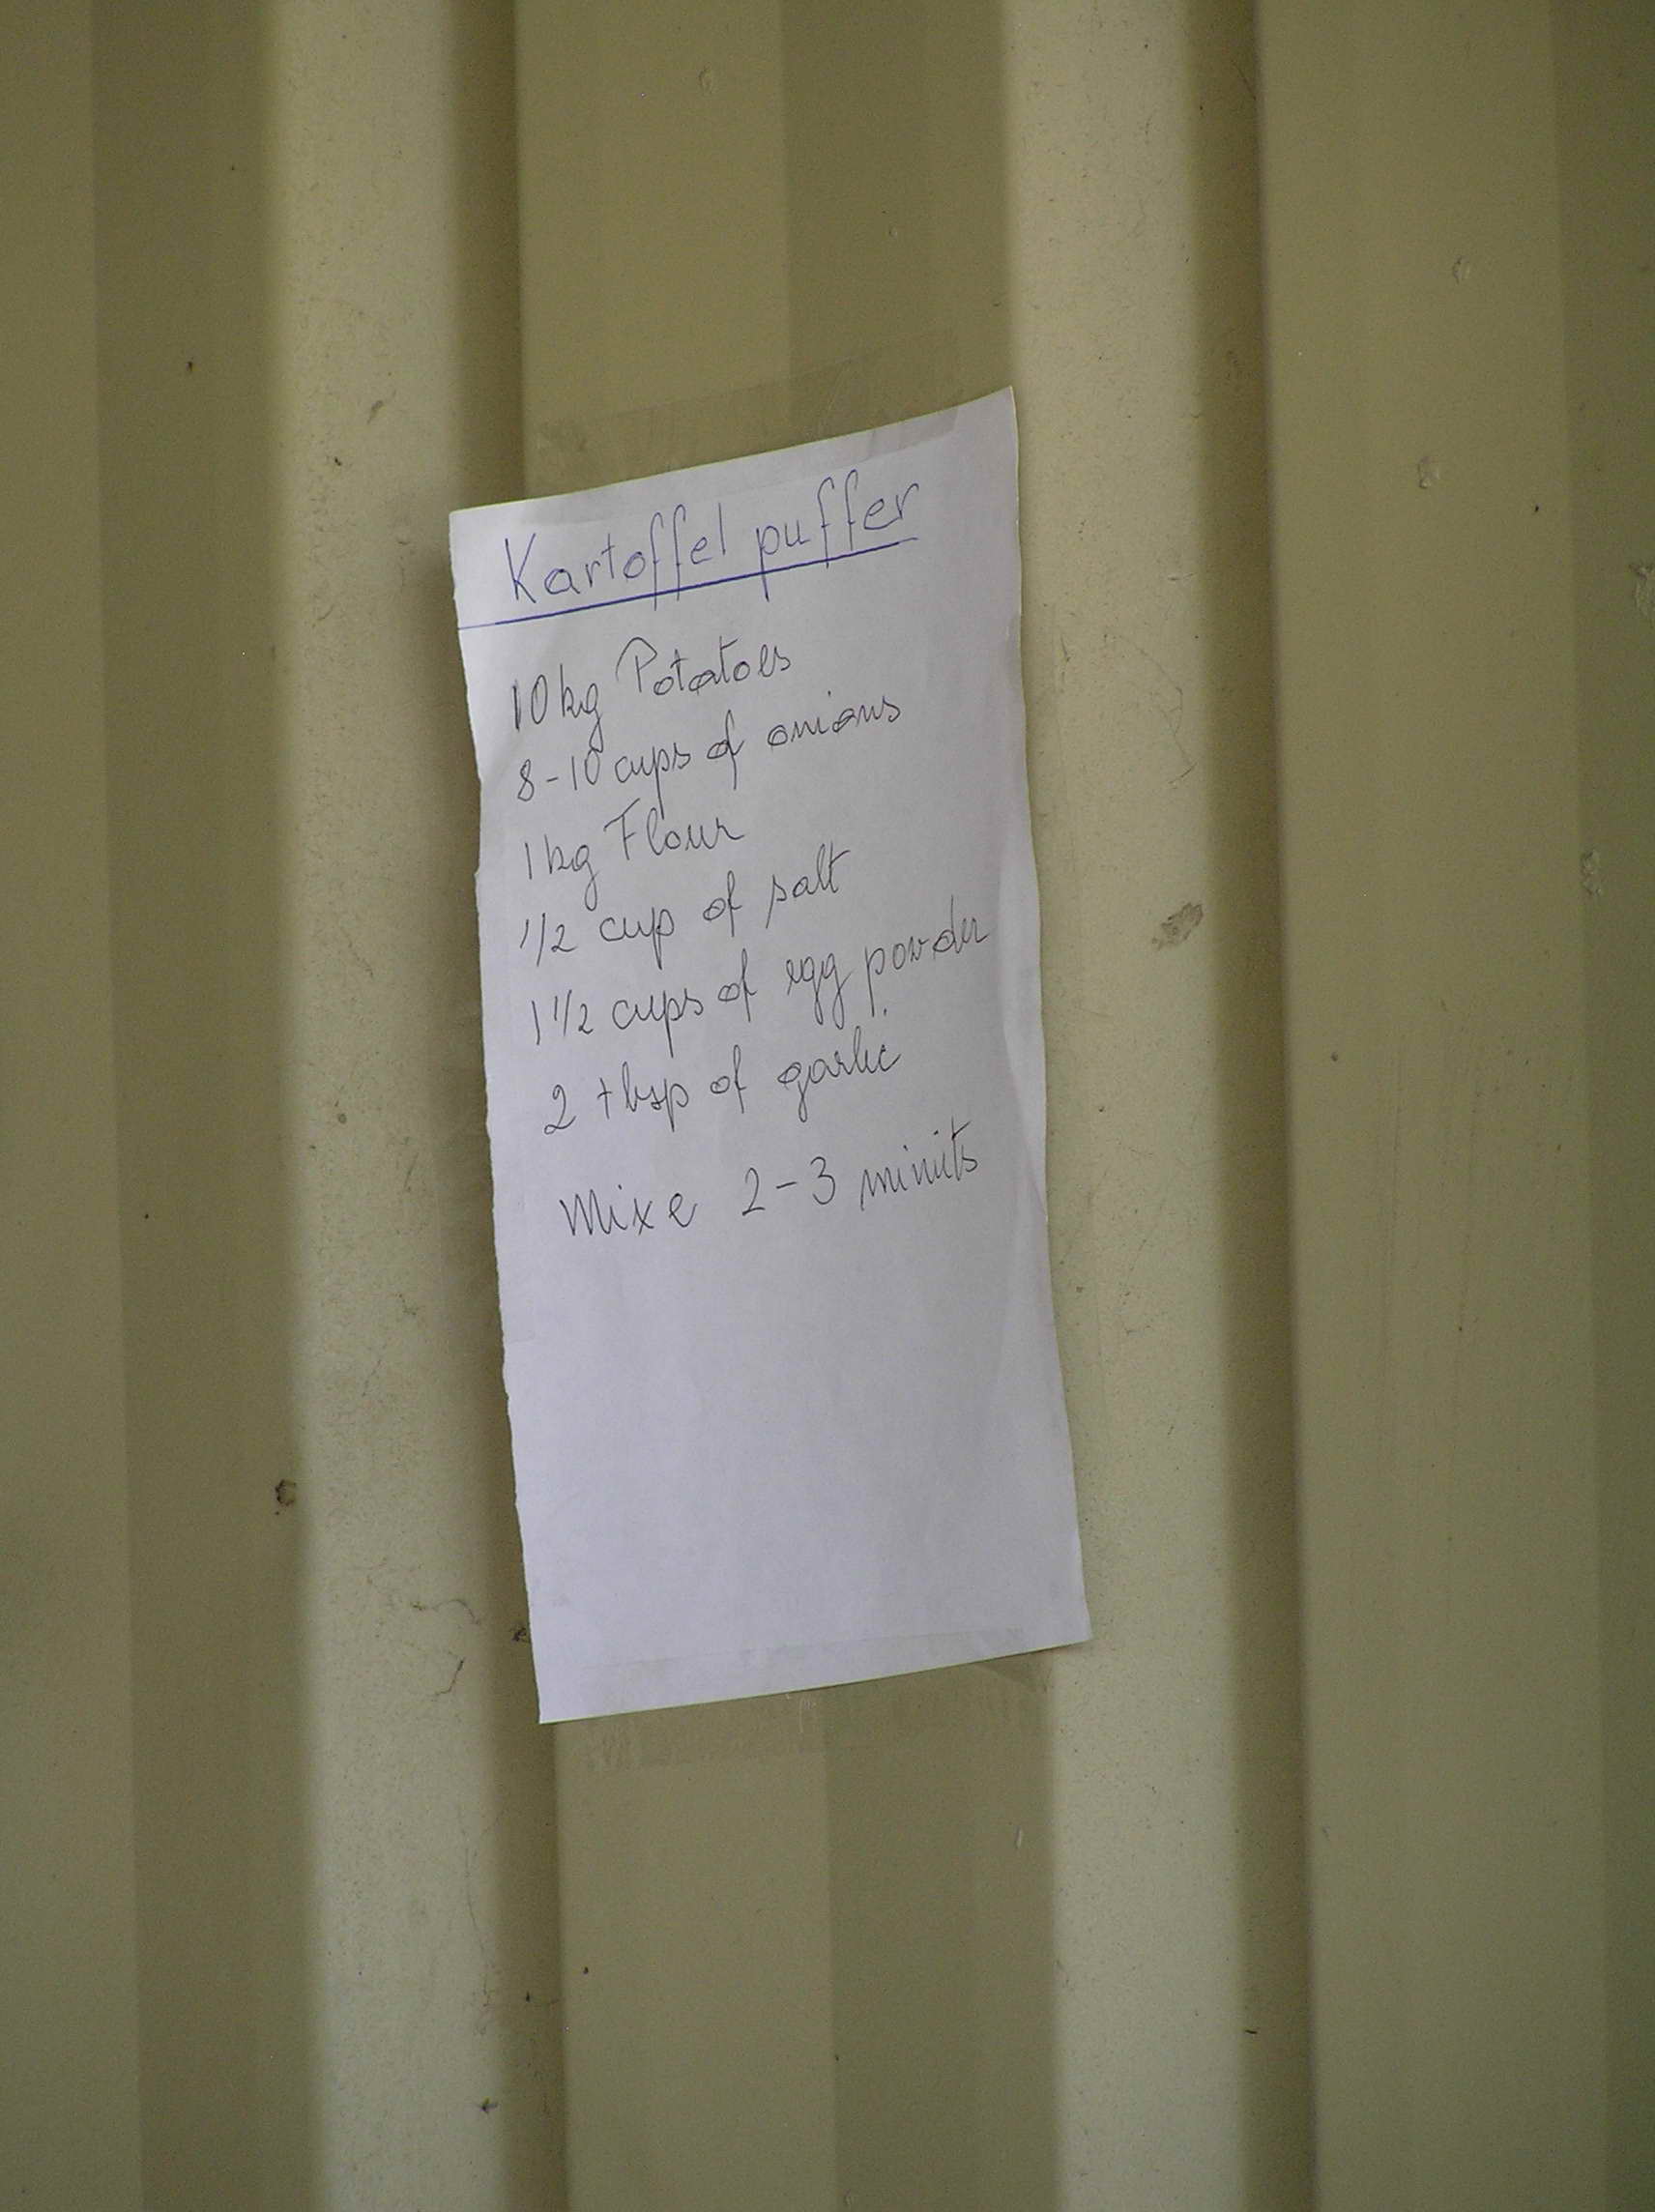 Kartoffel puffer
10 kg Potatoes
8-10 cups of onions
1 kg Flour
1/2 cup of salt
1 1/2 cups of egg powder
2 tbsp of garlic
Mixe 2-3 minits